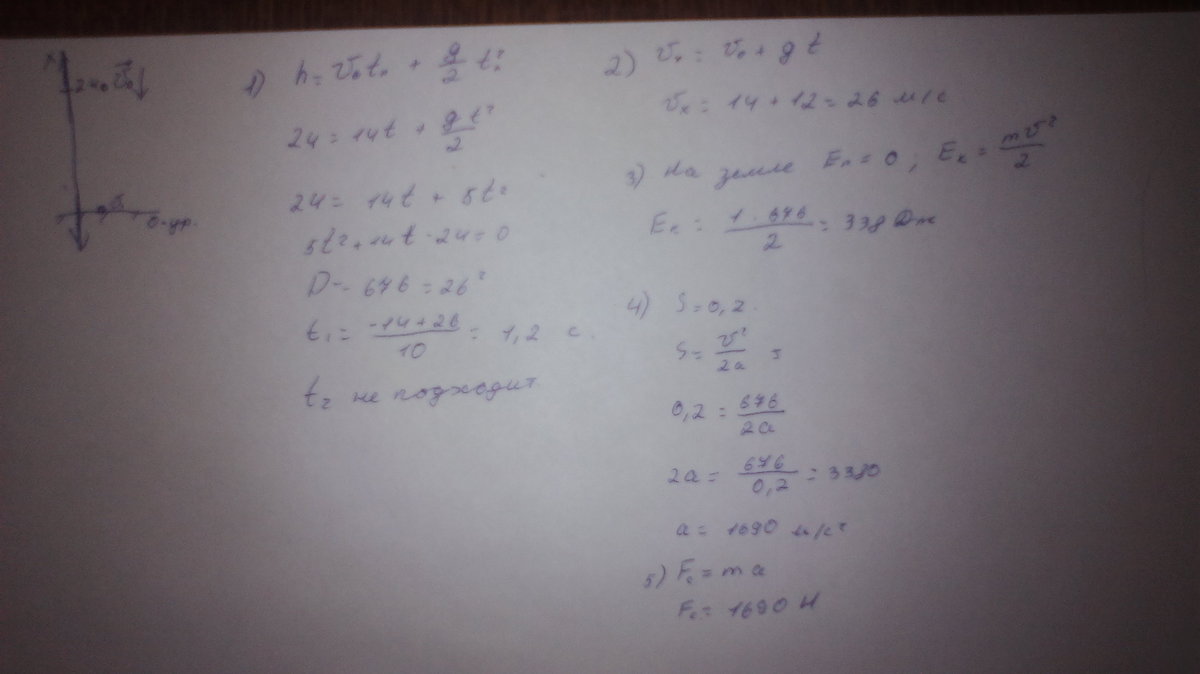 x
24 м v⃗₀↓
0-ур.
1) h = v₀tₙ + g/2 tₙ²
24 = 14t + gt²/2
24 = 14t + 5t²
5t² + 14t - 24 = 0
D = 676 = 26²
t₁ = (-14+26)/10 = 1,2 с.
t₂ не подходит
2) vₓ = v₀ + gt
vₓ = 14 + 12 = 26 м/с
3) На земле Eₙ = 0; Eₖ = mv²/2
Eₖ = (1 · 676)/2 = 338 Дж
4) S = 0,2.
S = v²/2a =
0,2 = 676/2a
2a = 676/0,2 = 3380
a = 1690 м/с²
5) F꜀ = ma
F꜀ = 1690 Н